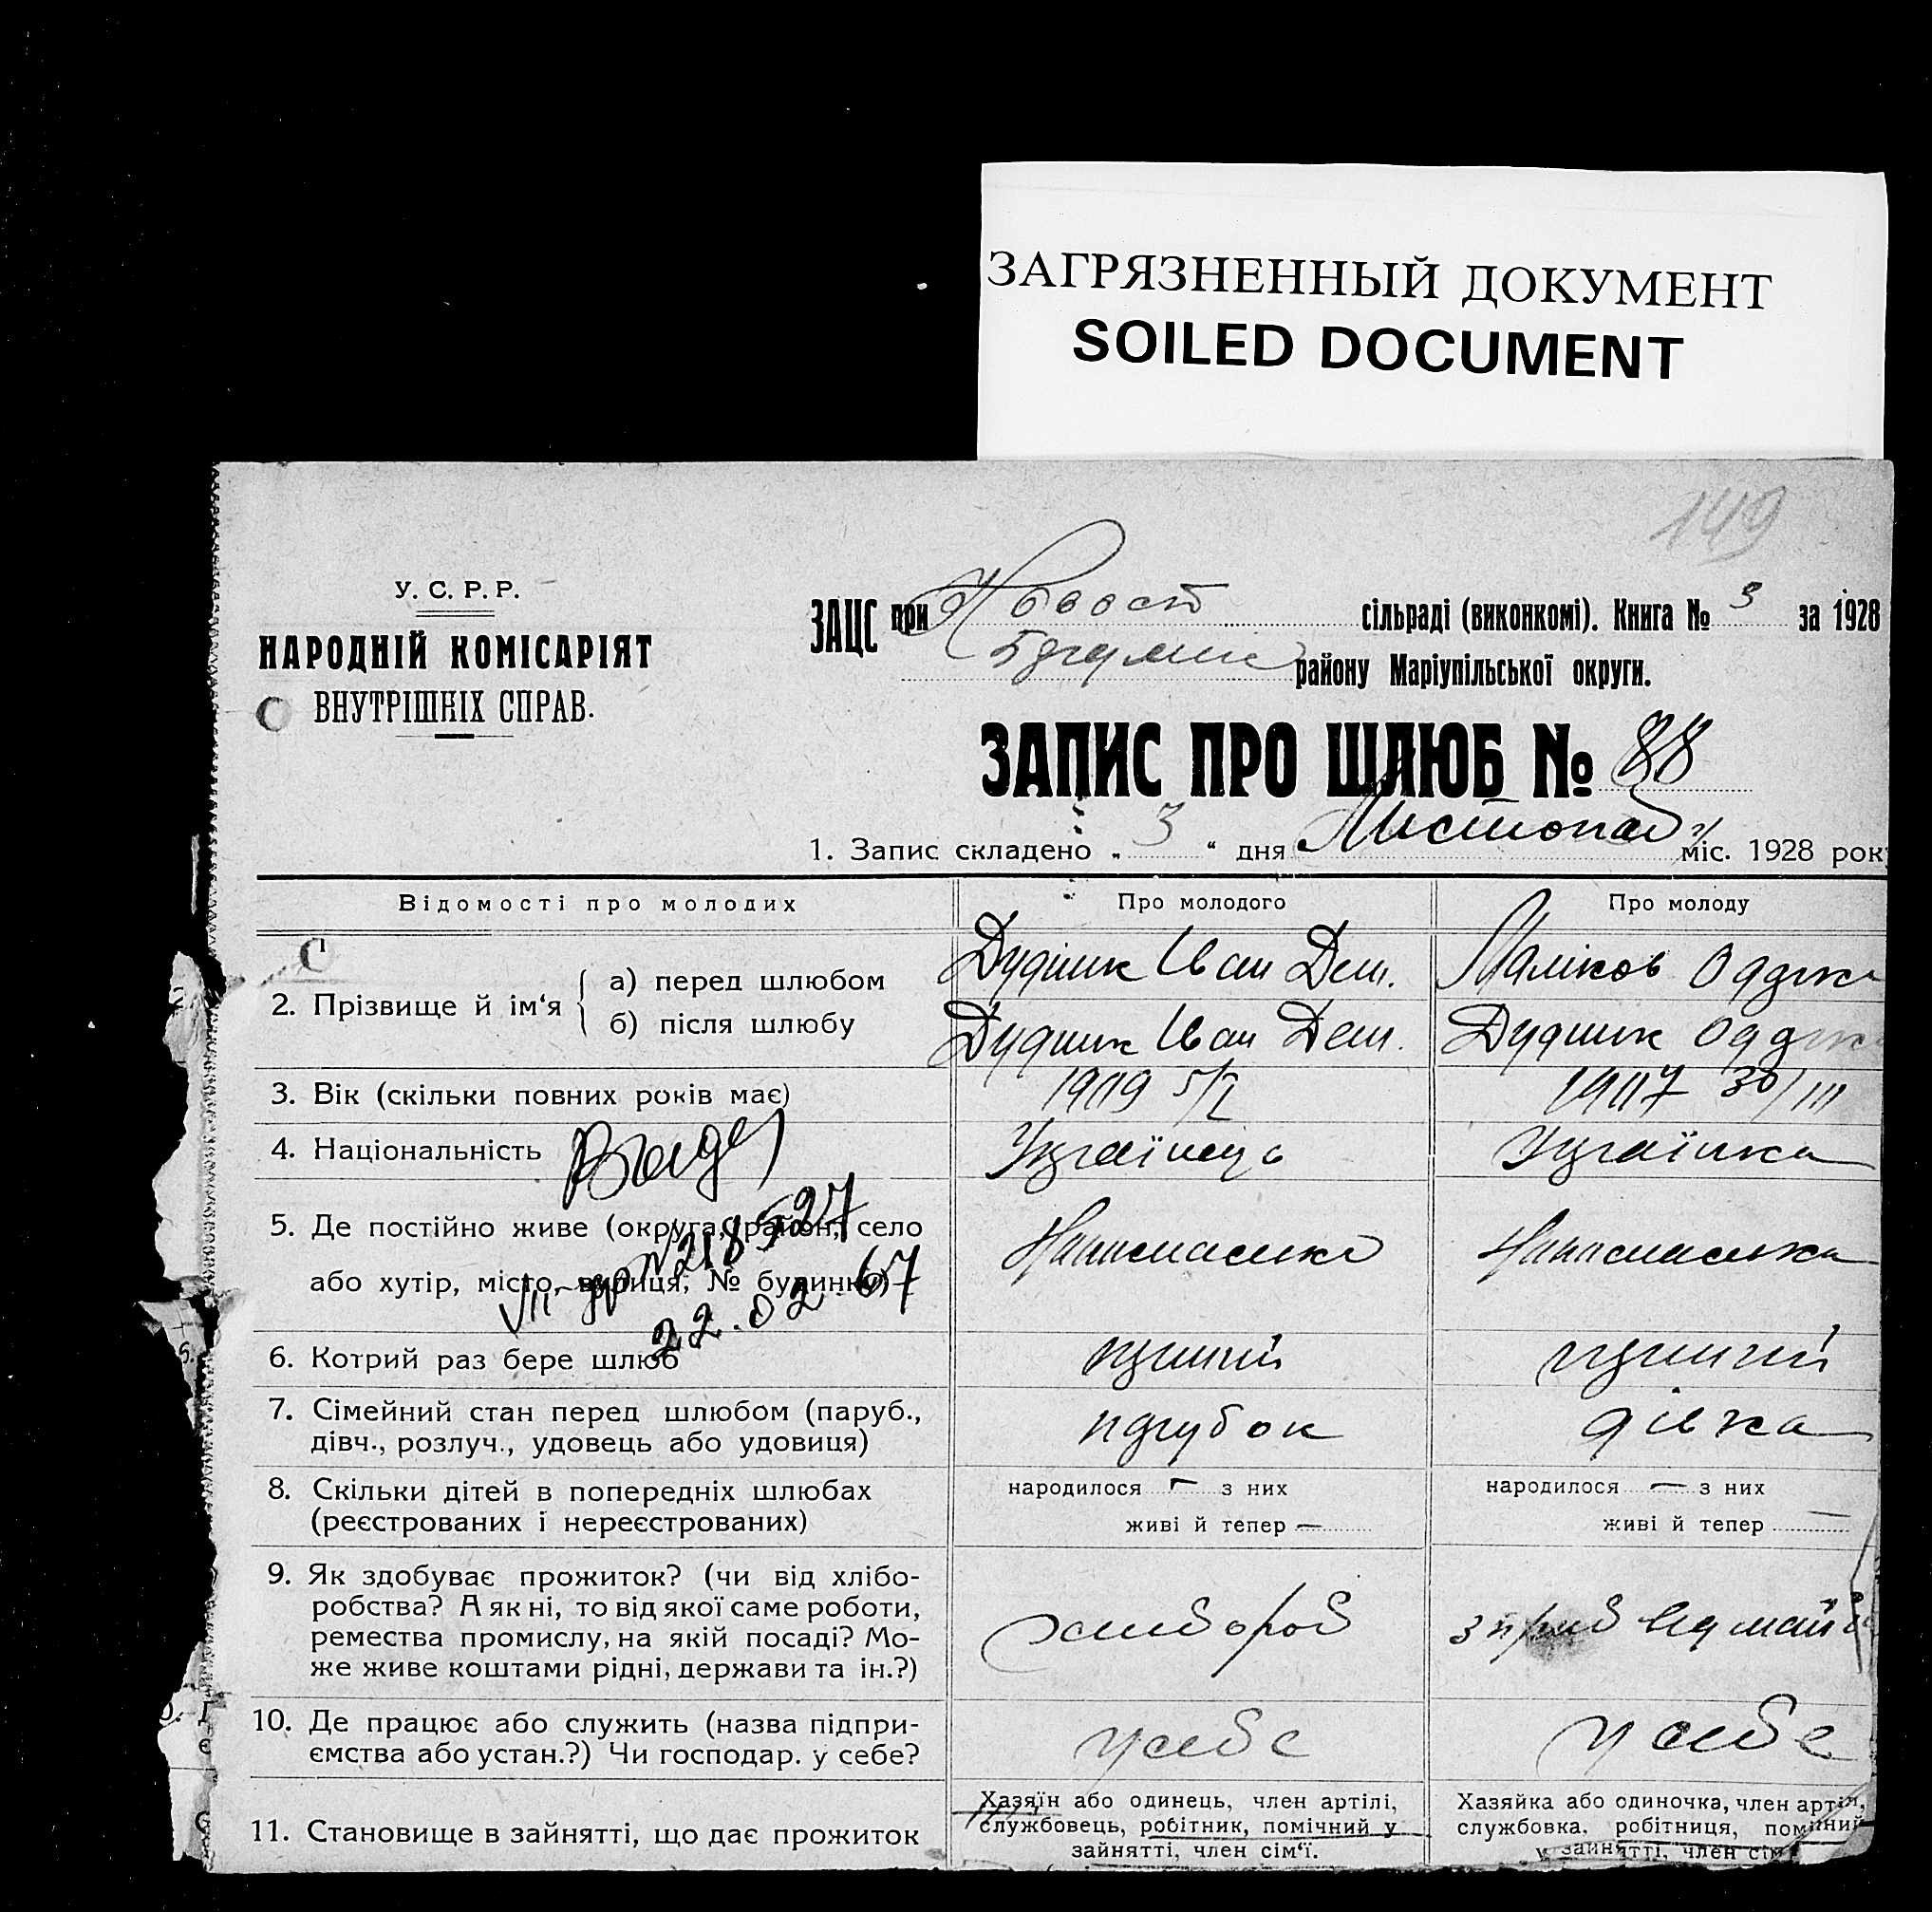 ЗАГРЯЗНЕННЫЙ ДОКУМЕНТ
SOILED DOCUMENT
149
У. С. Р. Р.
НАРОДНІЙ КОМІСАРІЯТ
ВНУТРІШНІХ СПРАВ.
ЗАЦС при сільраді (виконкомі). Книга № 3 за 1928
району Маріупільської округи.
ЗАПИС ПРО ШЛЮБ № 88
1. Запис складено „ 3 “ дня Листопад міс. 1928 рок
Відомості про молодих
Про молодого
Про молоду
2. Прізвище й ім‘я
а) перед шлюбом
Дудник Іван Дем.
б) після шлюбу
Дудник Іван Дем.
Дудник
3. Вік (скільки повних років має)
1909
1907 30/III
4. Національність
Українець
Українка
5. Де постійно живе (округа, район, село
або хутір, місто, вулиця, № будинку)
№218527
22.02.67
6. Котрий раз бере шлюб
перший
перший
7. Сімейний стан перед шлюбом (паруб.,
дівч., розлуч., удовець або удовиця)
парубок
дівка
8. Скільки дітей в попередніх шлюбах
(реєстрованих і нереєстрованих)
народилося — з них
живі й тепер —
народилося — з них
живі й тепер —
9. Як здобуває прожиток? (чи від хлібо-
робства? А як ні, то від якої саме роботи,
ремества промислу, на якій посаді? Мо-
же живе коштами рідні, держави та ін.?)
хлібороб
10. Де працює або служить (назва підпри-
ємства або устан.?) Чи господар. у себе?
у себе
у себе
11. Становище в зайнятті, що дає прожиток
Хазяїн або одинець, член артілі,
службовець, робітник, помічний у
зайнятті, член сім‘ї.
Хазяйка або одиночка, член артіл,
службовка, робітниця, помічний
у зайнятті, член сім